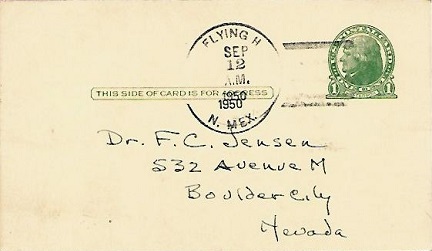 FLYING H
SEP
12
A.M.
1950
1950
N. MEX.
THIS SIDE OF CARD IS FOR ADDRESS
1 1
Dr. F.C. Jensen
532 Avenue M
Boulder City
Nevada